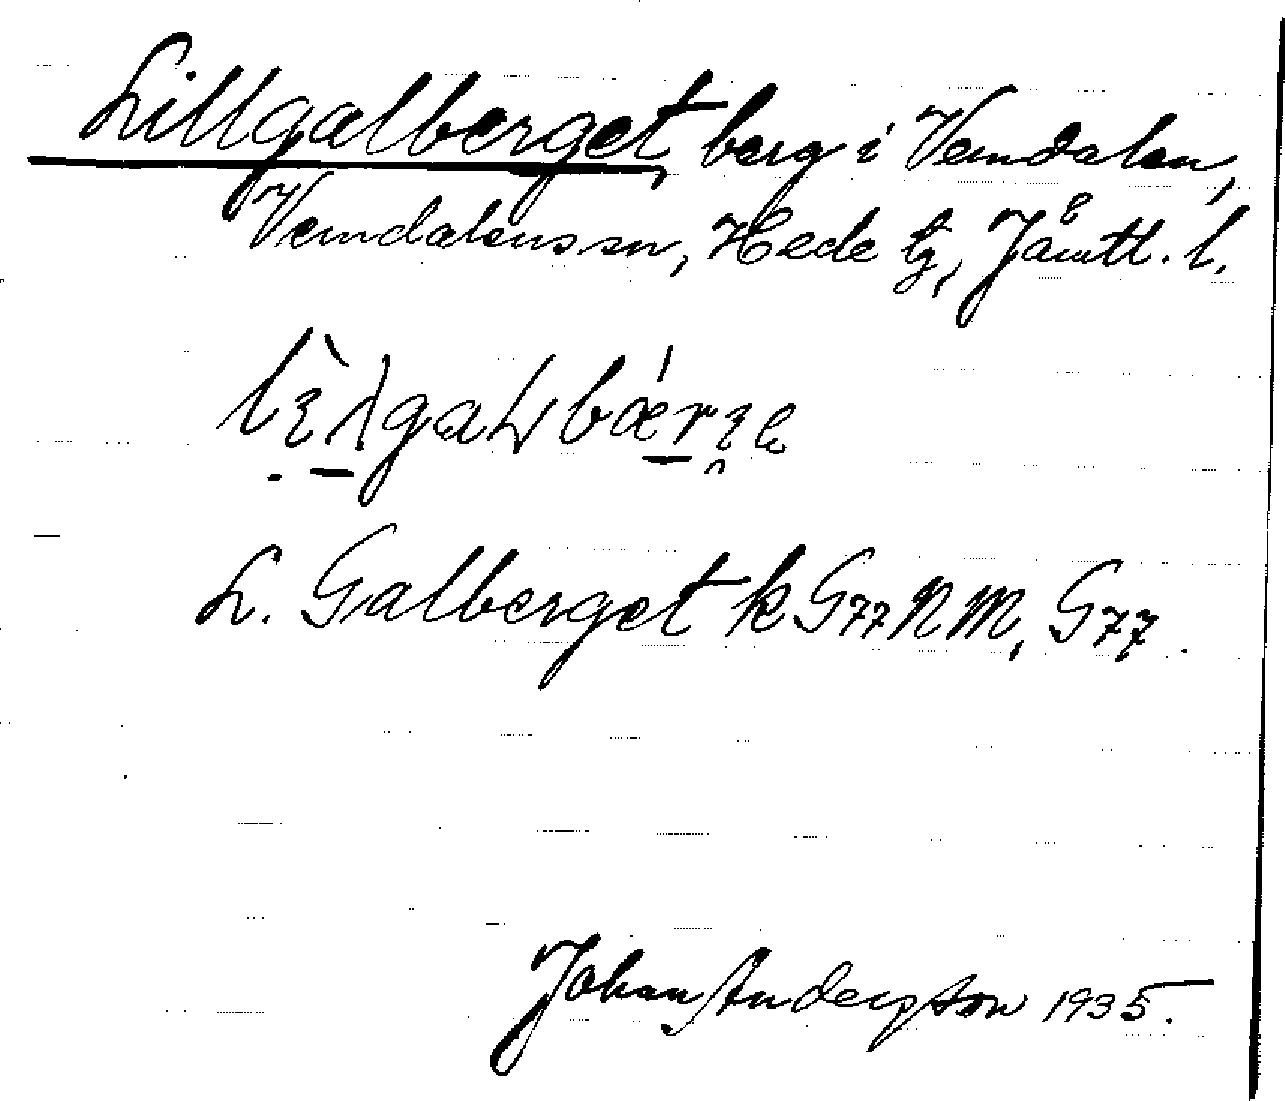 Lillgalberget, berg i Vemdalen,
Vemdalens sn, Hede tg, Jämtl. l.
L. Galberget k G77 N M, G77.
Johan Anderson 1935.